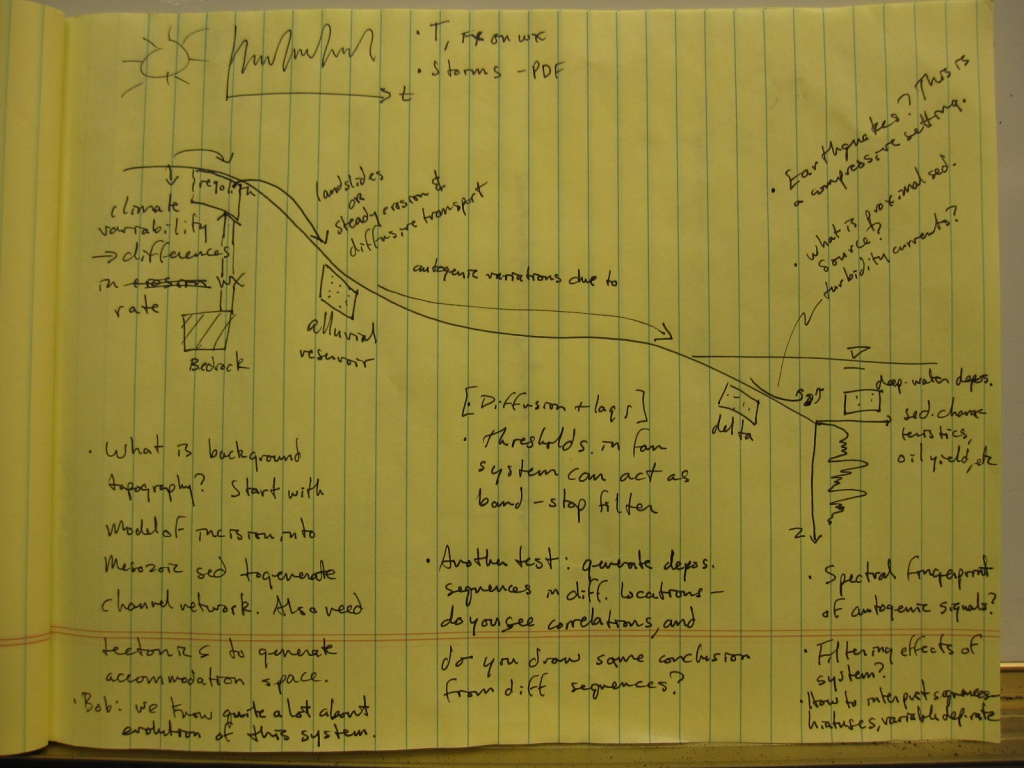 t
· T, FX on wx
· Storms - PDF
· Earthquakes? This is
a compressive setting.
· What is proximal sed.
source?
turbidity currents?
regolith
climate
variability
→ differences
in erosion WX
rate
Bedrock
landslides
OR
steady erosion &
diffusive transport
alluvial
reservoir
autogenic variations due to
delta
deep-water depos.
sed. charac
teristics,
oil yield, etc
z
[· Diffusion + lags]
· thresholds in fan
system can act as
band-stop filter
· Another test: generate depos.
sequences in diff. locations -
do you see correlations, and
do you draw same conclusion
from diff sequences?
· What is background
topography? Start with
model of incision into
Mesozoic sed to generate
channel network. Also need
tectonics to generate
accommodation space.
· Bob: we know quite a lot about
evolution of this system.
· Spectral fingerprint
of autogenic signals?
· Filtering effects of
system?
· How to interpret sequences
hiatuses, variable dep rate